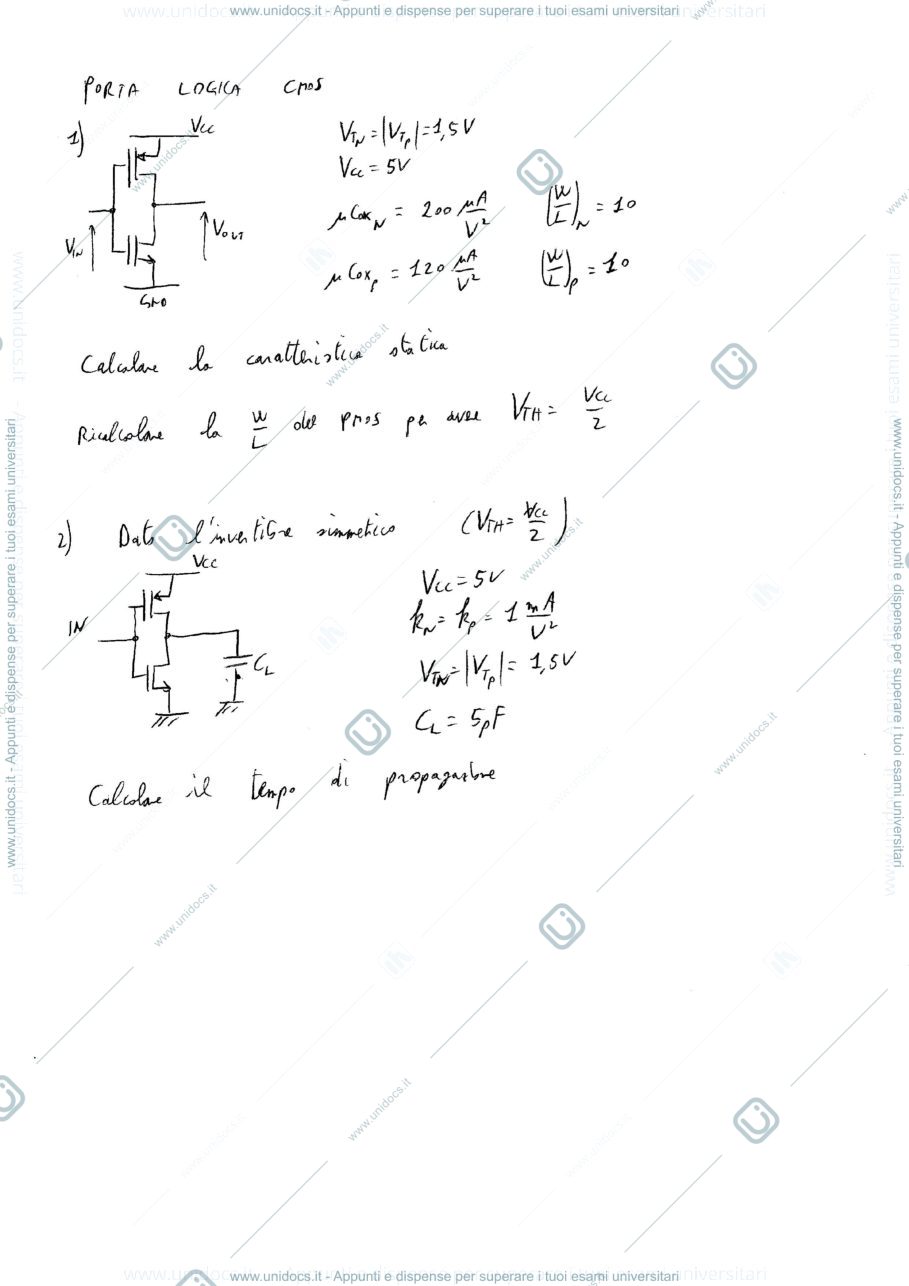 www.unidocs.it - Appunti e dispense per superare i tuoi esami universitari
PORTA LOGICA CMOS
1)
Vcc
VIN
VOUT
GND
VTN = |VTp| = 1,5 V
Vcc = 5V
μCoxN = 200 μA/V² (W/L)N = 10
μCoxp = 120 μA/V² (W/L)p = 10
Calcolare la caratteristica statica
Ricalcolare la W/L del PMOS per avere VTH = Vcc/2
2) Dato l'invertitore simmetrico (VTH = Vcc/2)
Vcc
IN
CL
Vcc = 5V
kN = kp = 1 mA/V²
VTN = |VTp| = 1,5V
CL = 5pF
Calcolare il tempo di propagazione
www.unidocs.it - Appunti e dispense per superare i tuoi esami universitari
www.unidocs.it - Appunti e dispense per superare i tuoi esami universitari
www.unidocs.it - Appunti e dispense per superare i tuoi esami universitari
www.unidocs.it
www.unidocs.it
www.unidocs.it
www.unidocs.it
www.unidocs.it
www.unidocs.it